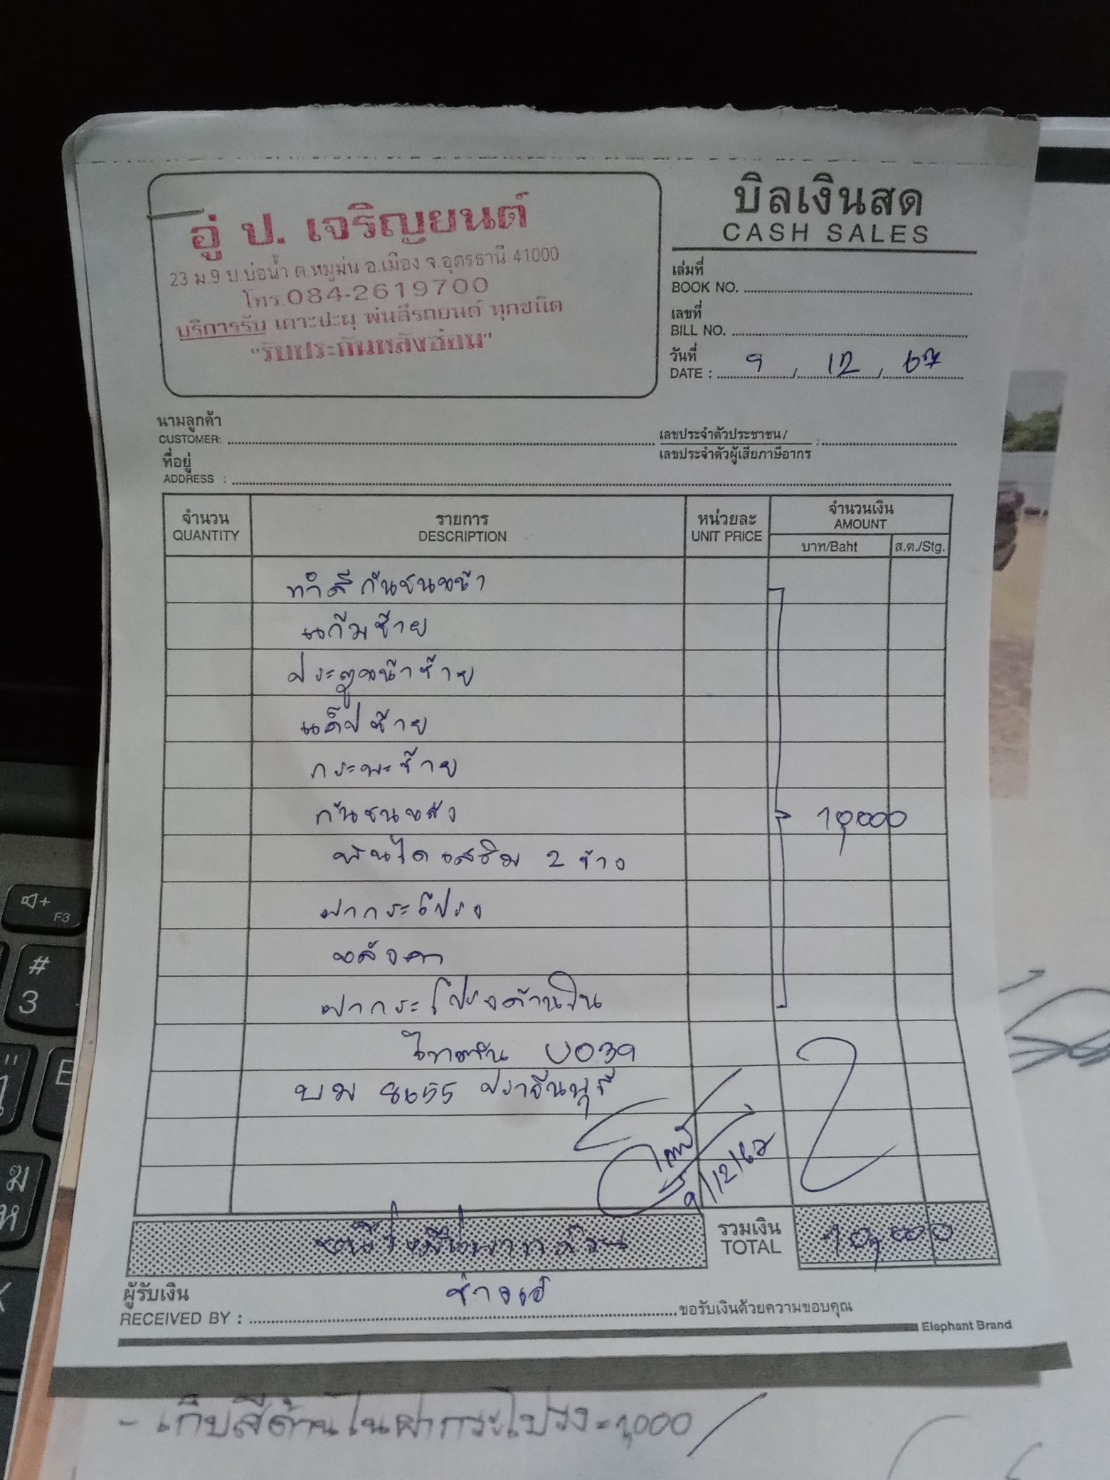 อู่ ป. เจริญยนต์
23 ม.9 บ.บ่อน้ำ ต.หมูม่น อ.เมือง จ.อุดรธานี 41000
โทร.084-2619700
บริการรับ เคาะปะผุ พ่นสีรถยนต์ ทุกชนิด
"รับประกันหลังซ่อม"
บิลเงินสด
CASH SALES
เล่มที่
BOOK NO.
เลขที่
BILL NO.
วันที่
DATE : 9 / 12 / 67
นามลูกค้า
CUSTOMER:
เลขประจำตัวประชาชน/ :
เลขประจำตัวผู้เสียภาษีอากร
ที่อยู่
ADDRESS :
จำนวน
QUANTITY
รายการ
DESCRIPTION
หน่วยละ
UNIT PRICE
จำนวนเงิน
AMOUNT
บาท/Baht
ส.ต./Stg.
ทำสีกันชนหน้า
แก้มซ้าย
ประตูหน้าซ้าย
แค็ปซ้าย
กระบะซ้าย
กันชนหลัง
10,000
บันไดเสริม 2 ข้าง
ฝากระโปรง
หลังคา
ฝากระโปรงด้านใน
ไททัน U039
บม 8655 ปราจีนบุรี
9/12/67
รวมเงิน
TOTAL
10,000
ผู้รับเงิน
RECEIVED BY :
ช่างเอ๋
ขอรับเงินด้วยความขอบคุณ
Elephant Brand
- เก็บสีด้านในฝากระโปรง = 1,000
F3
#
3
E
ม
ห